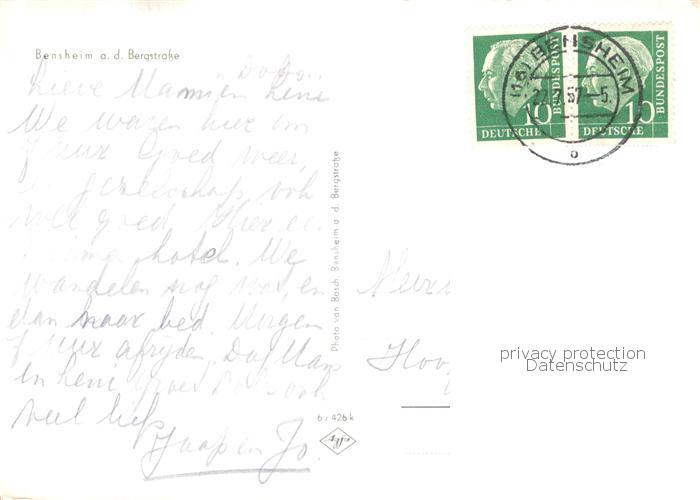 Bensheim a. d. Bergstraße
Lieve Mam en Leni
We waren hier om
7 uur Goed weer,
gezelschap ook
heel goed Hier
prima hotel. We
wandelen nog wat, en
dan naar bed. Morgen
7 uur afrijden. Dag Mam
en Leni
veel liefs
Jaap en Jo.
Photo van Bosch, Bensheim a. d. Bergstraße
6/426k
(16) BENSHEIM
57-5
10 10
DEUTSCHE BUNDESPOST
DEUTSCHE BUNDESPOST
privacy protection
Datenschutz